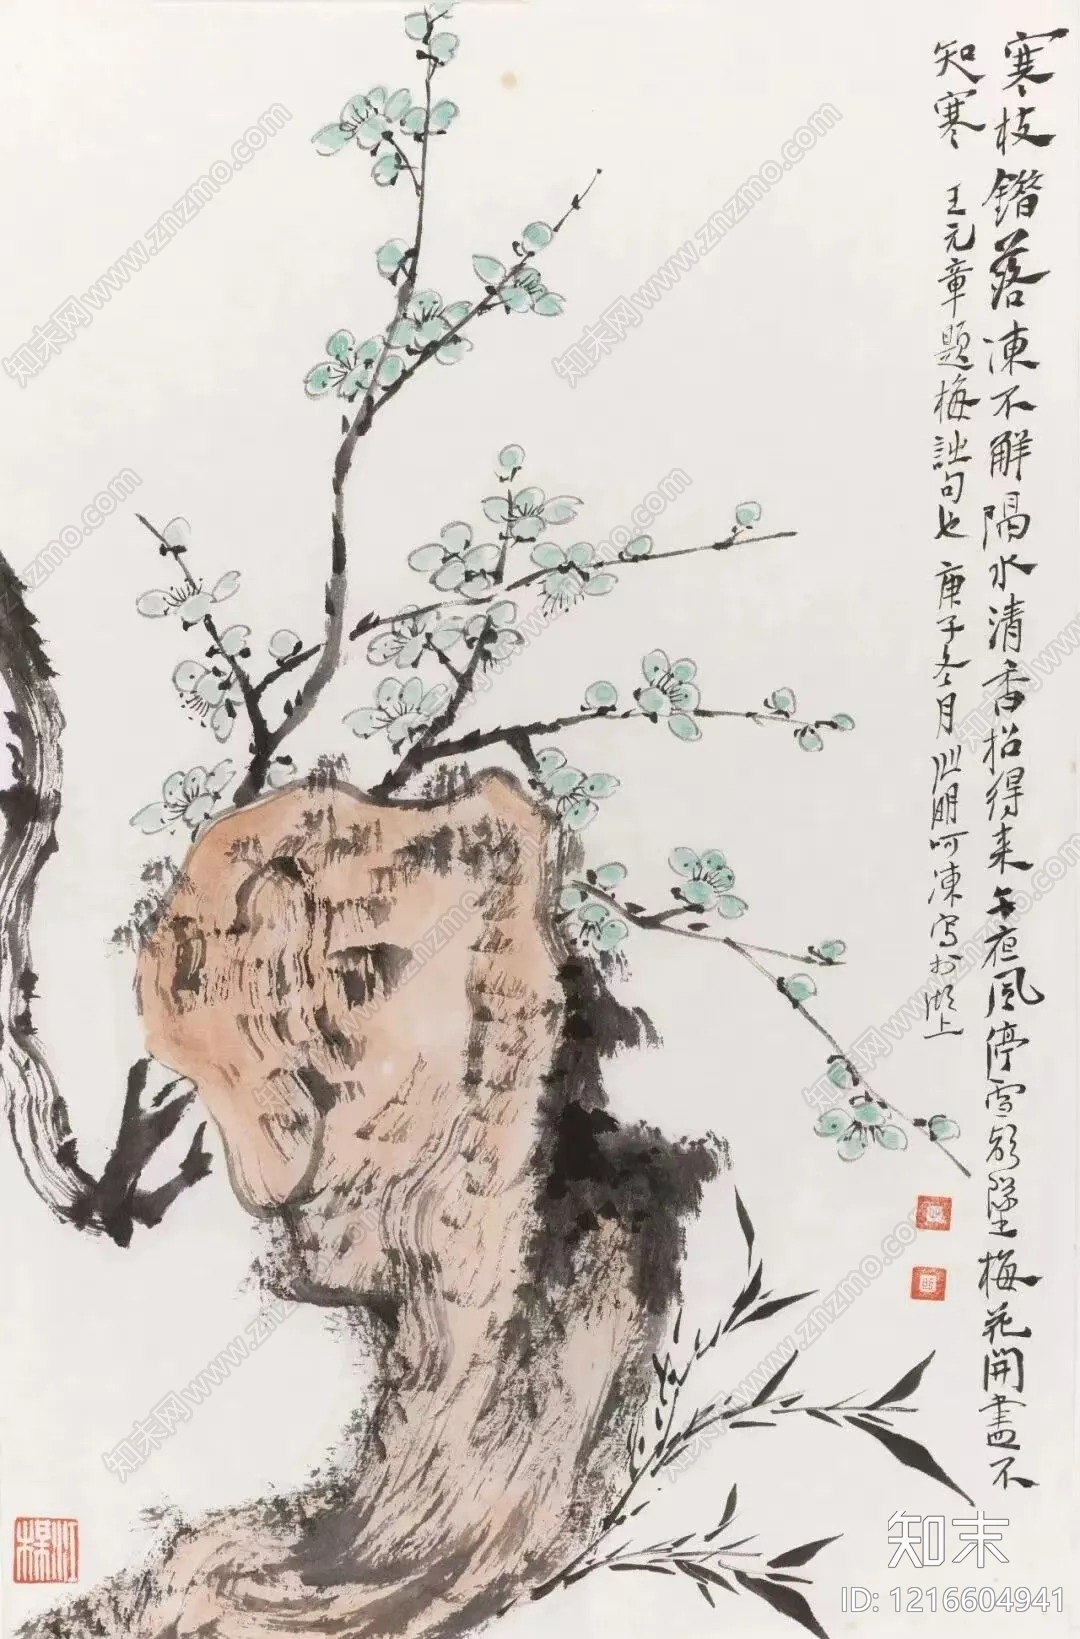 寒枝錯落凍不解隔水清香招得来午夜風停雪欲墜梅花開盡不
知寒 王元章題梅詩句也 庚子冬月 明呵凍寫於湖上
知末
ID: 1216604941
知末网www.znzmo.com